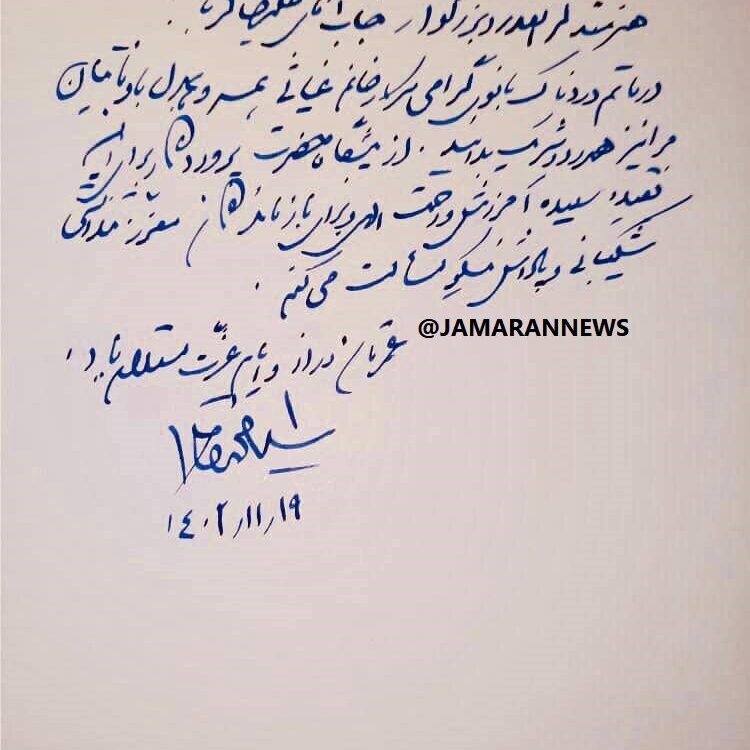 هنرمند گرانقدر و بزرگوار جناب آقای
در ماتم دردناک بانوی گرامی سرکار خانم غیاثی همسر و همدل باوفایتان
مرا نیز همدرد و شریک بدانید. از پیشگاه حضرت پروردگار برای آن
فقیده سعیده آمرزش و رحمت الهی و برای بازماندگان معزز
شکیبایی و پاداش نیکو مسألت می‌کنم.
عمرتان دراز و ایام عزت مستدام باد!
@JAMARANNEWS
سید محمد خاتمی
۱۴۰۲/۱۱/۱۹